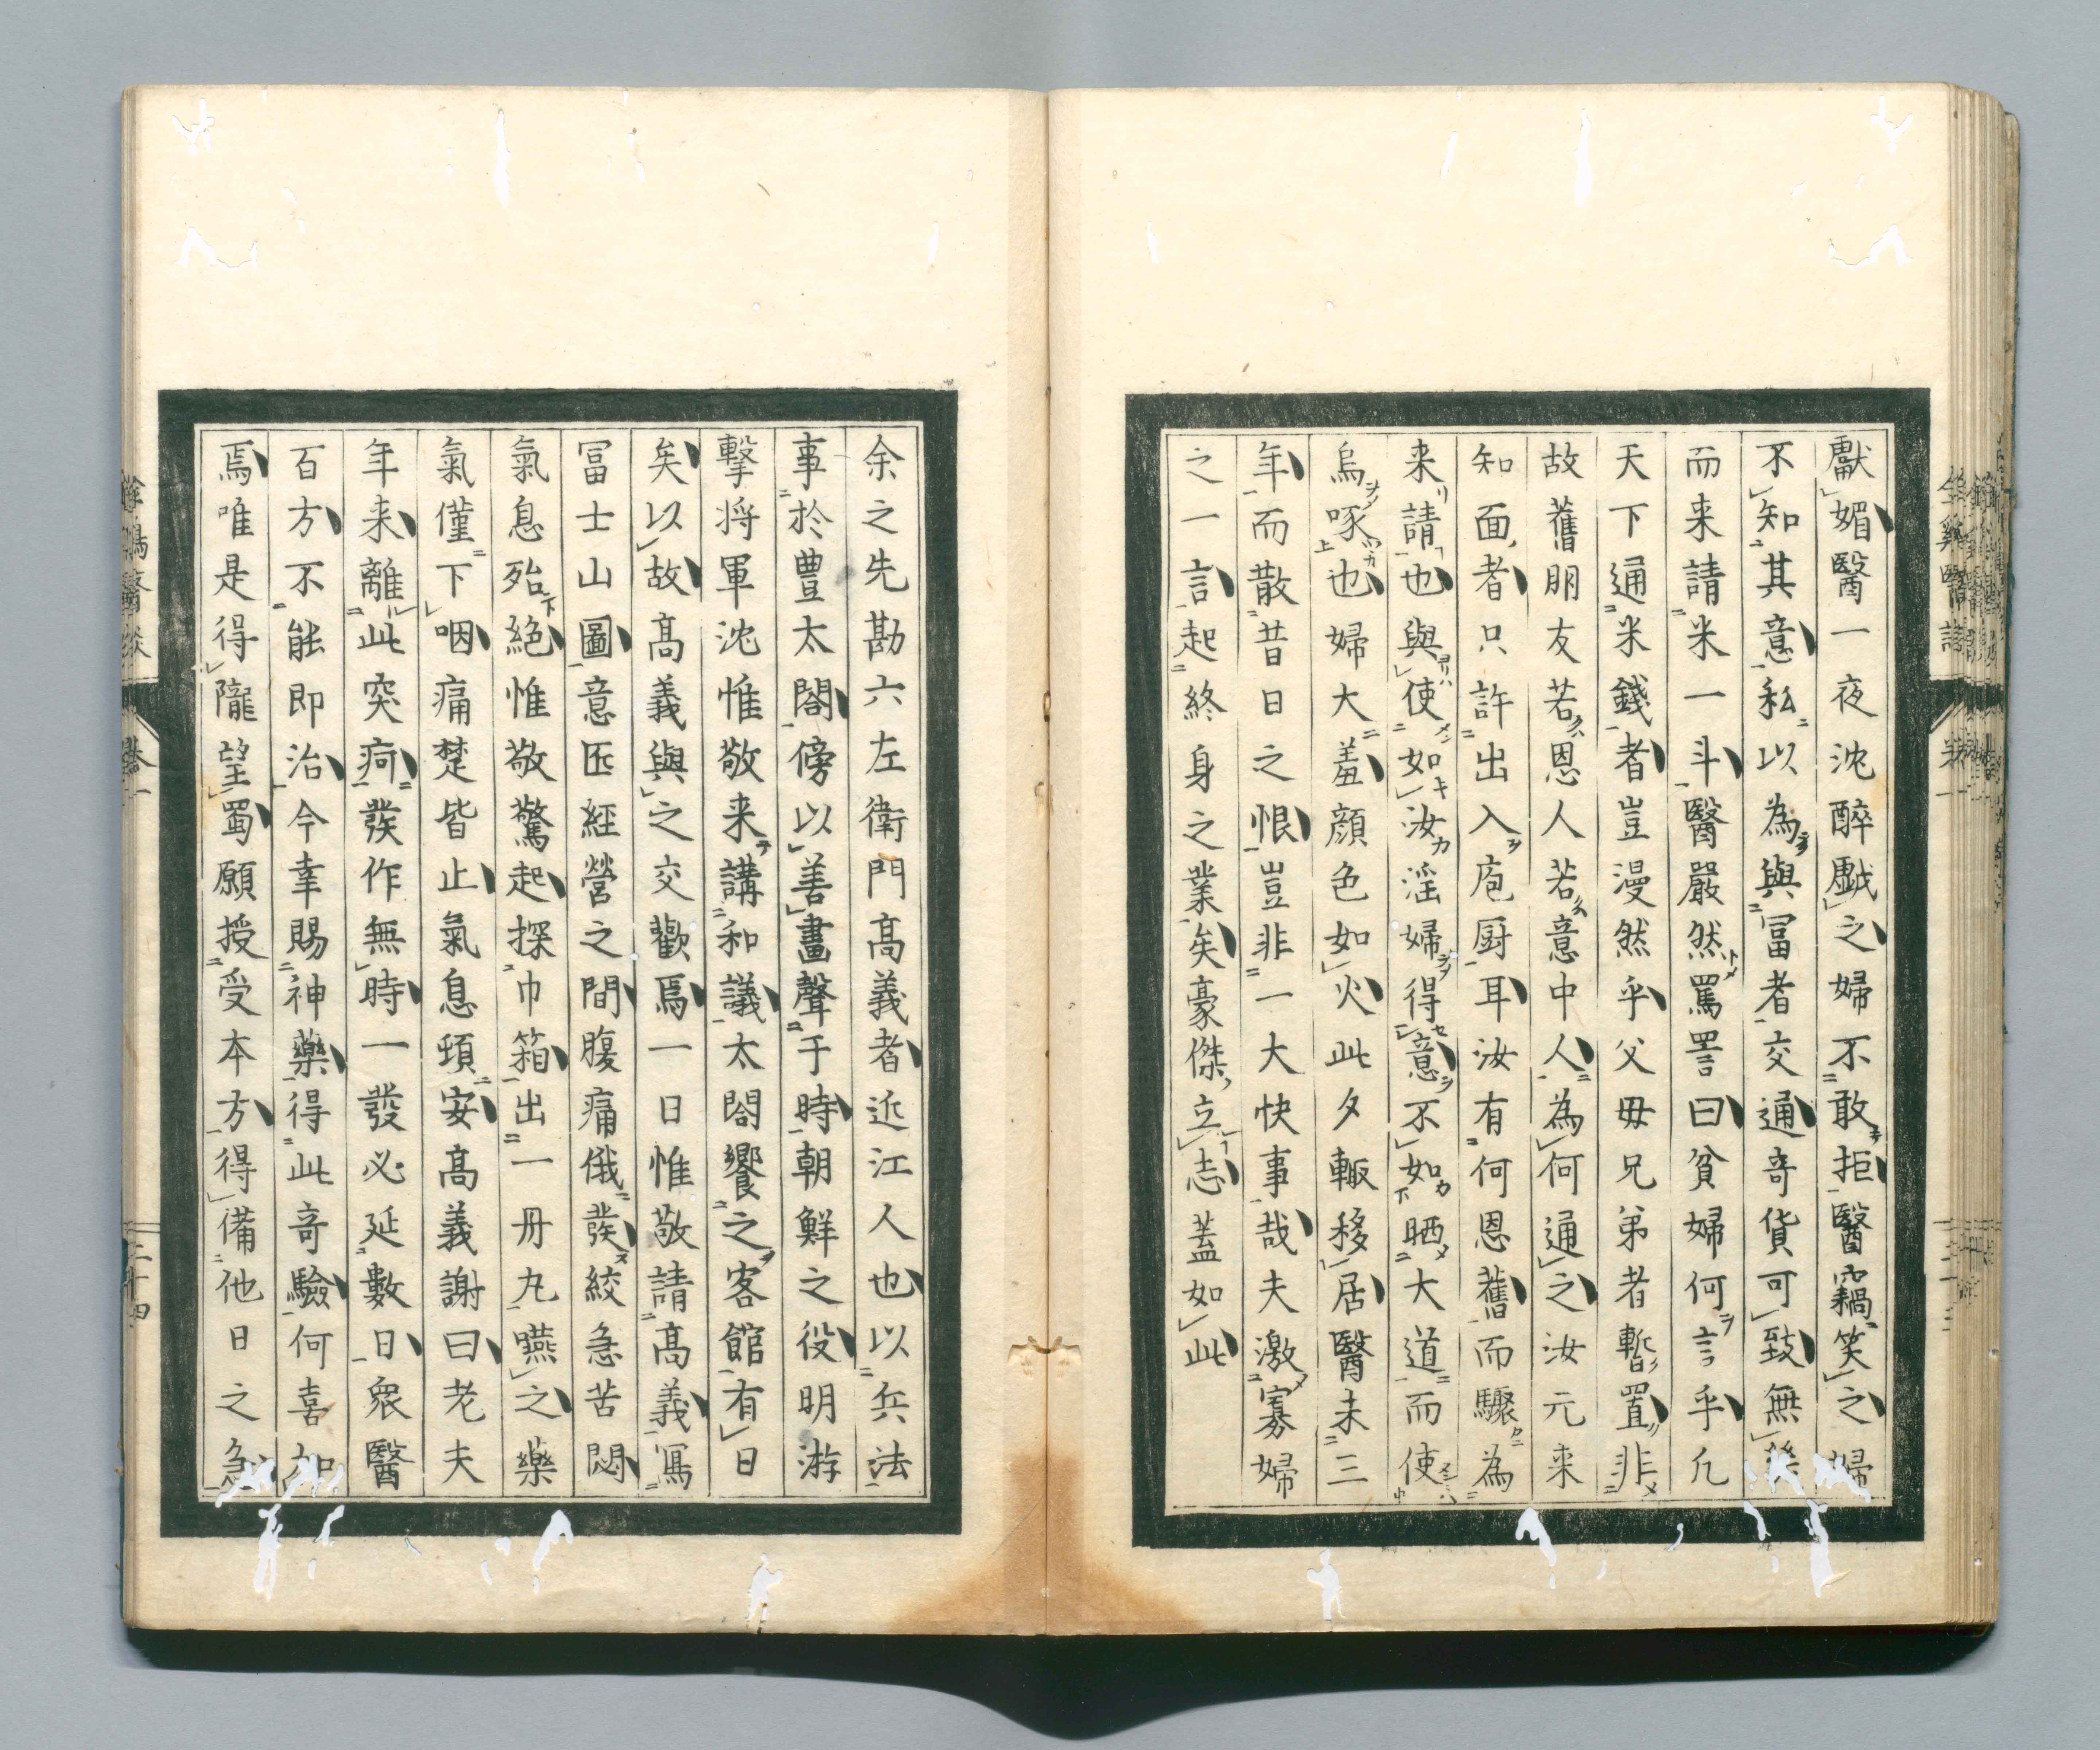 獻媚醫一夜沈醉戲之婦不敢拒醫竊笑之婦
不知其意私以為與冨者交通奇貨可致無幾
而来請米一斗醫嚴然罵詈曰貧婦何言乎凢
天下通米錢者豈漫然乎父毋兄弟者暫置非
故舊朋友若恩人若意中人為何通之汝元来
知面者只許出入庖厨耳汝有何恩舊而驟為
来請也與使如汝淫婦得意不如晒大道而使
烏啄也婦大羞顔色如火此夕輙移居醫未三
年而散昔日之恨豈非一大快事哉夫激寡婦
之一言起終身之業矣豪傑立志蓋如此
余之先勘六左衛門高義者近江人也以兵法
事於豊太閤傍以善畫聲于時朝鮮之役明游
擊将軍沈惟敬来講和議太閤饗之客館有日
矣以故高義與之交歡焉一日惟敬請高義冩
冨士山圖意匠經營之間腹痛俄發絞急苦悶
氣息殆絕惟敬驚起探巾箱出一丹丸嚥之藥
氣僅下咽痛楚皆止氣息頓安高義謝曰老夫
年来離此突疴發作無時一發必延數日衆醫
百方不能即治今幸賜神藥得此奇驗何喜如
焉唯是得隴望蜀願授受本方得備他日之急
卷一
二十四